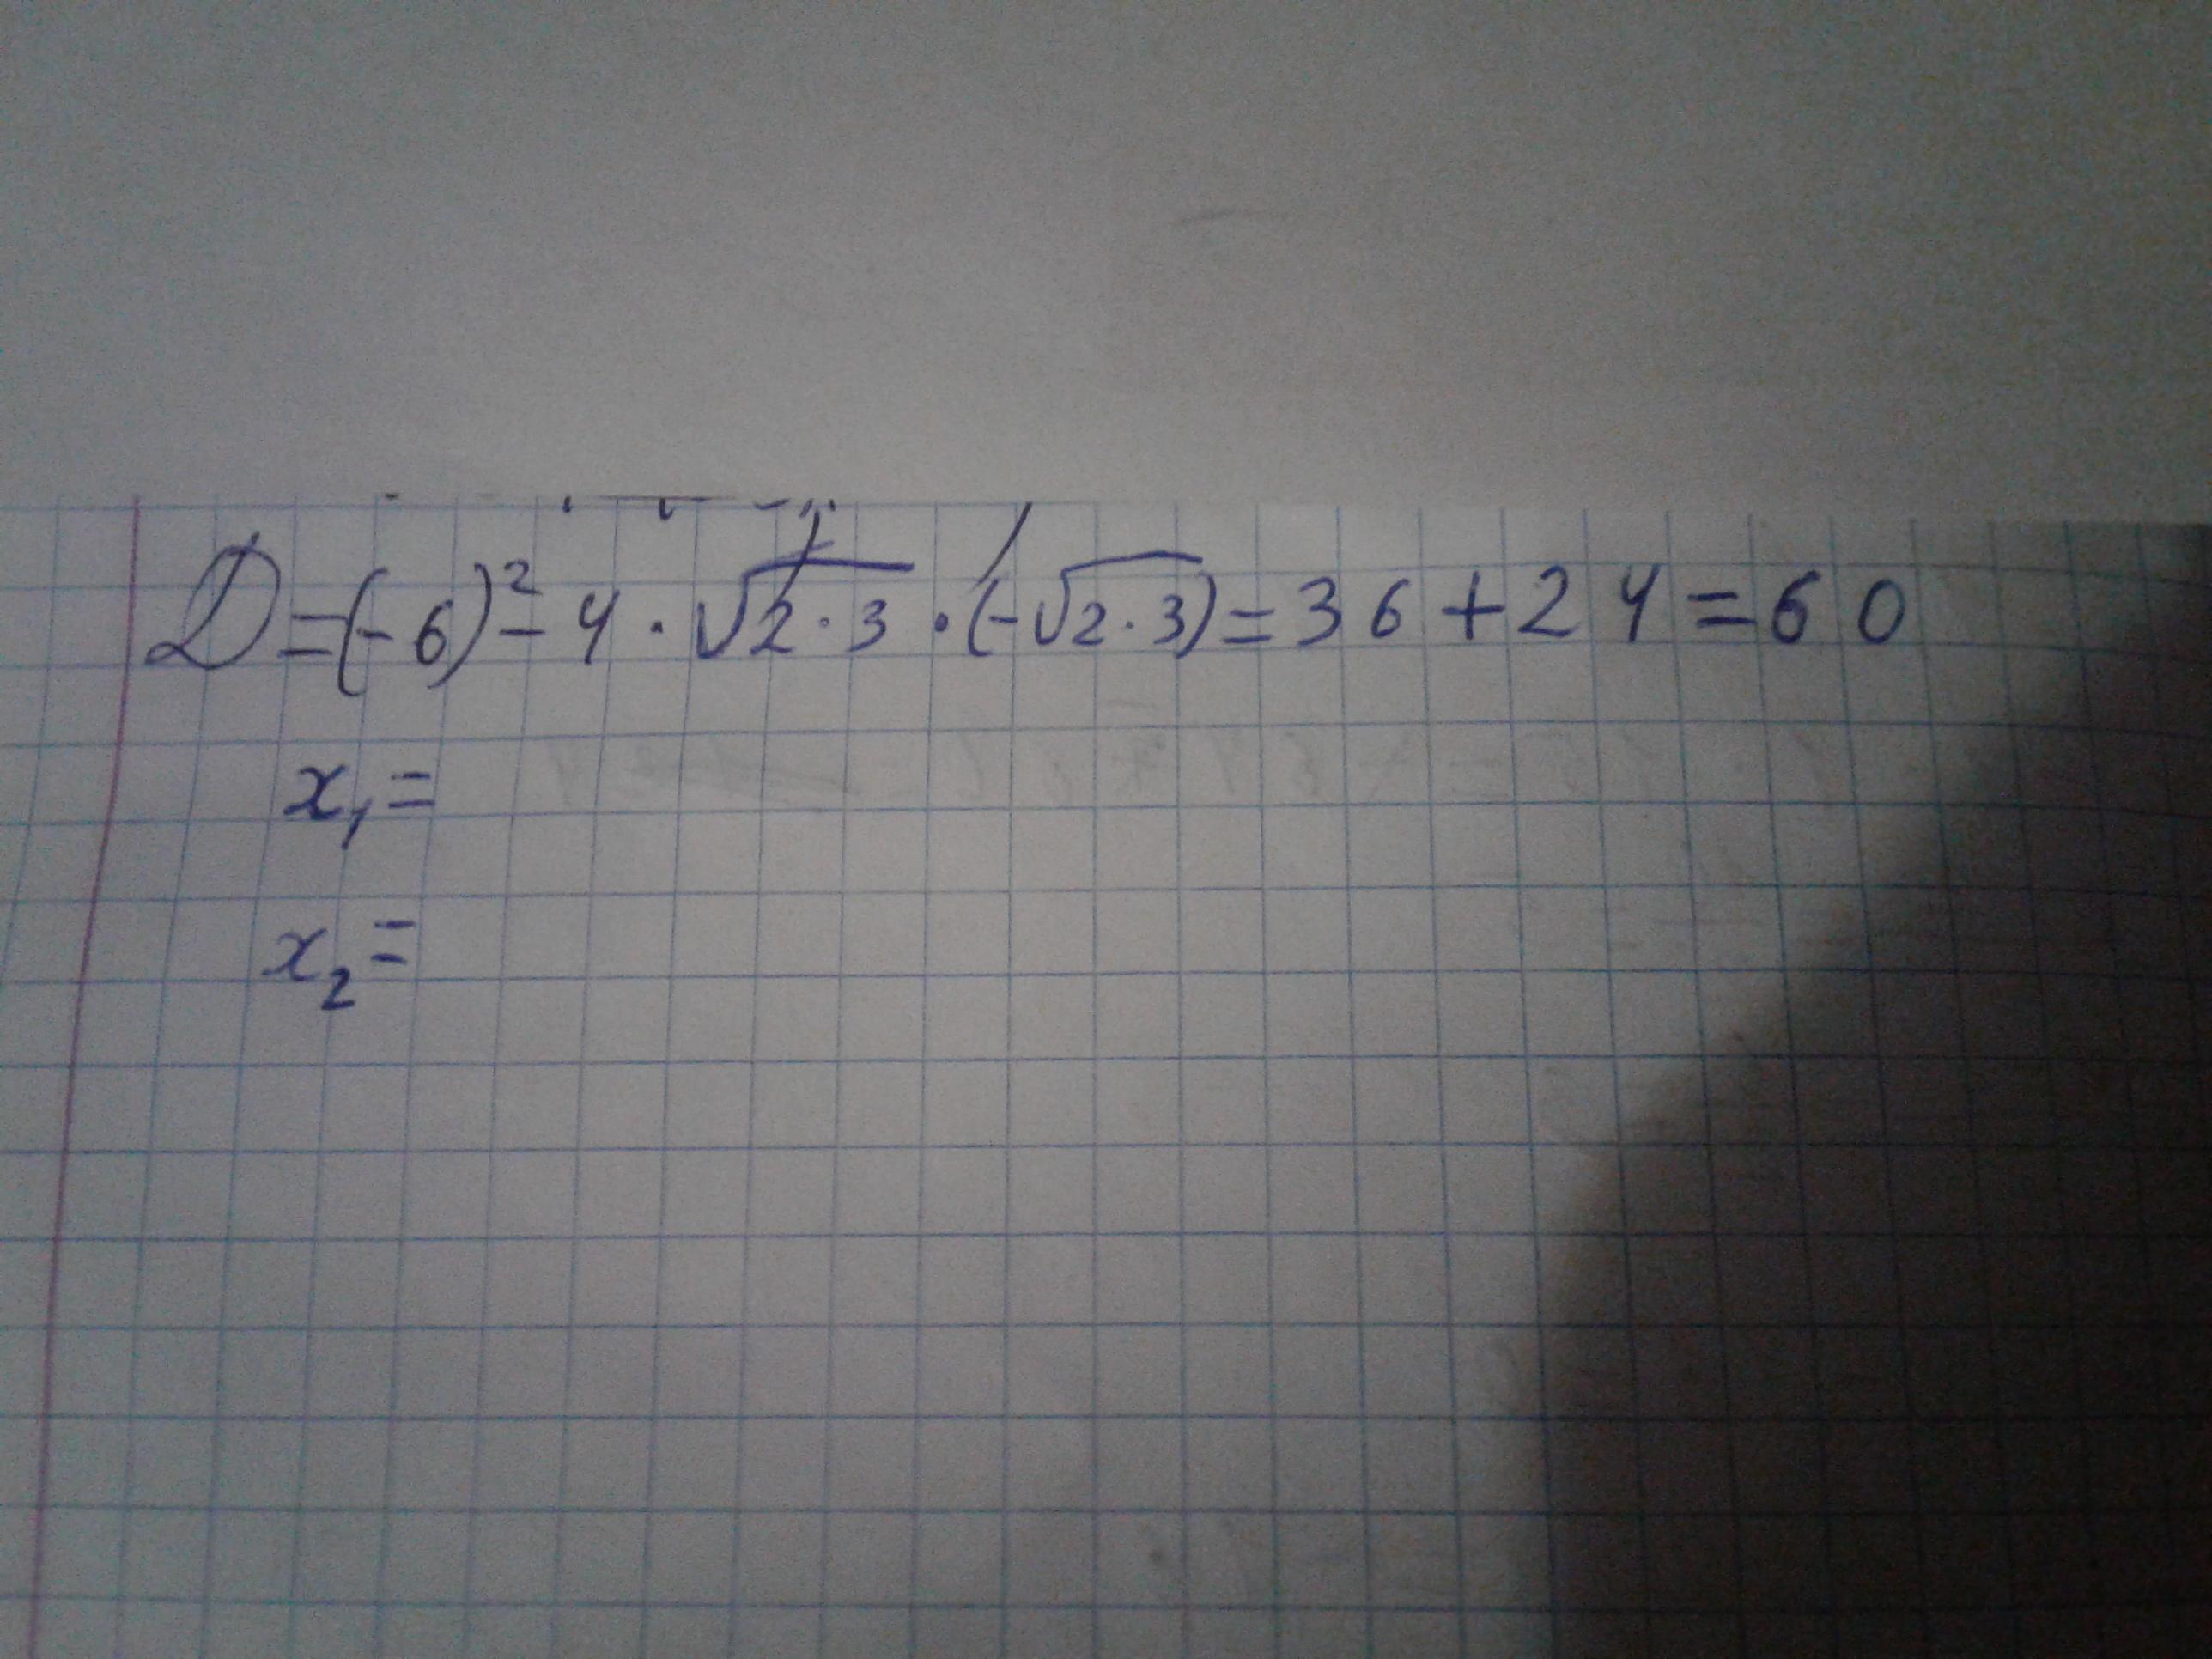 D=(-6)²-4·√2·3·(-√2·3)=36+24=60
x₁=
x₂=